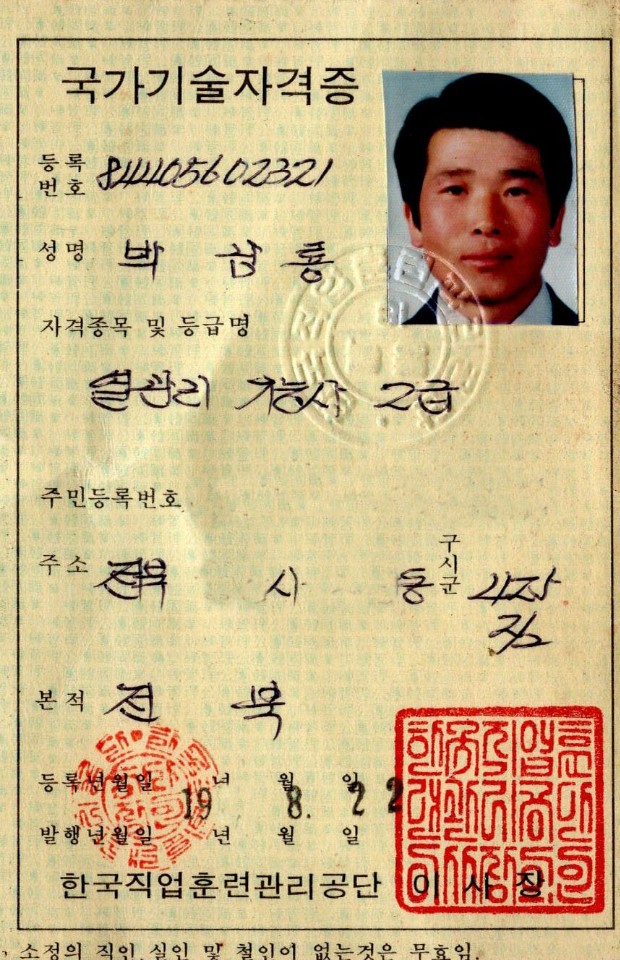 국가기술자격증
등록번호 84405602321
성명 박삼룡
자격종목 및 등급명
열관리 기능사 2급
주민등록번호
주소 전북 시 동 구시군
본적 전북
등록년월일 19 년 8. 월 22 일
발행년월일 년 월 일
한국직업훈련관리공단 이사장
소정의 직인, 실인 및 철인이 없는것은 무효임.